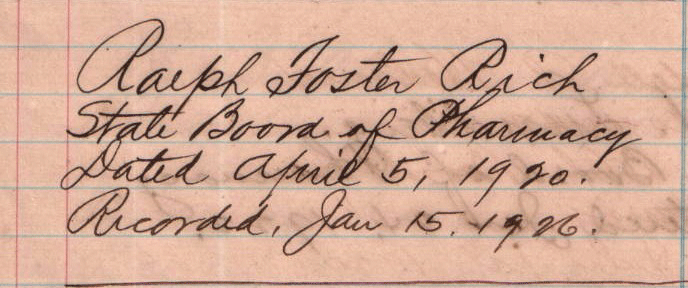 Ralph Foster Rich
State Board of Pharmacy
Dated April 5, 1920.
Recorded, Jan 15. 1926.